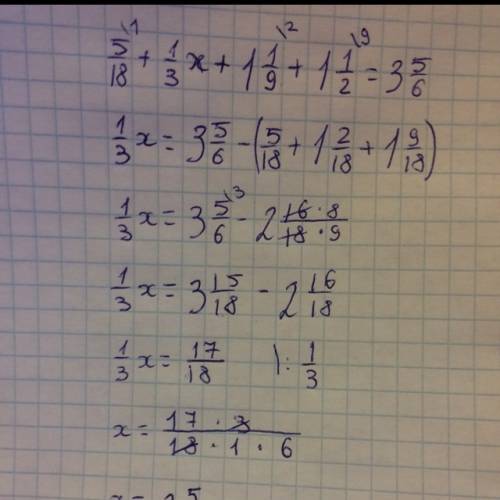 5/18 \1 + 1/3 x + 1 1/9 \2 + 1 1/2 \9 = 3 5/6
1/3 x = 3 5/6 - (5/18 + 1 2/18 + 1 9/18)
1/3 x = 3 5/6 \3 - 2 16·8/18·9
1/3 x = 3 15/18 - 2 16/18
1/3 x = 17/18 |: 1/3
x = 17·3/18·1·6